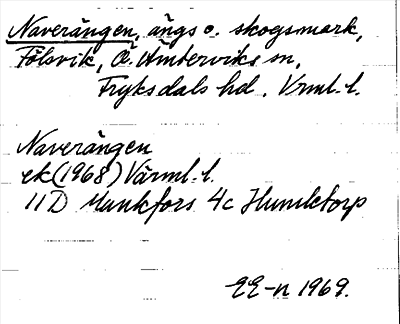 Naverängen, ängs o. skogsmark,
Fölsvik, Ö. Ämterviks sn,
Fryksdals hd. Vrml. l.
Naverängen
ek (1968) Värml. l.
11D Munkfors 4c Humletorp
EE-n 1969.